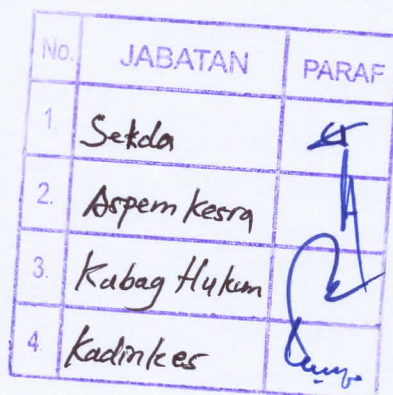 No. JABATAN PARAF
1 Sekda
2. Aspem Kesra
3. Kabag Hukum
4. Kadinkes